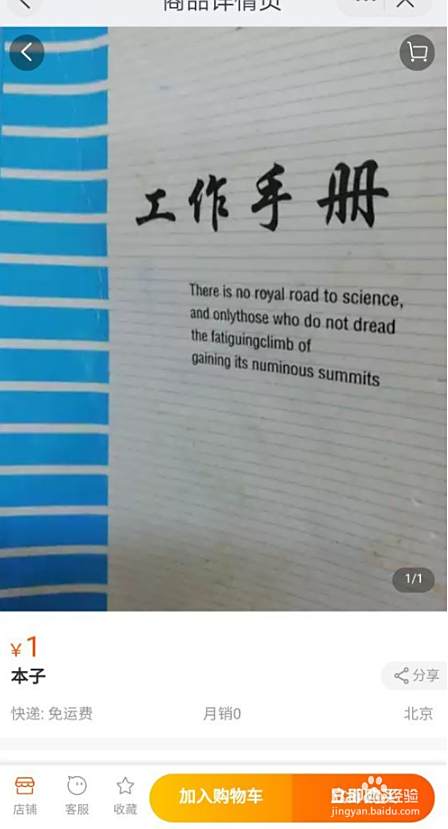 商品详情页
工作手册
There is no royal road to science,
and onlythose who do not dread
the fatiguingclimb of
gaining its numinous summits
1/1
¥1
本子
分享
快递: 免运费
月销0
北京
店铺
客服
收藏
加入购物车
立即购买
Baidu经验
jingyan.baidu.com